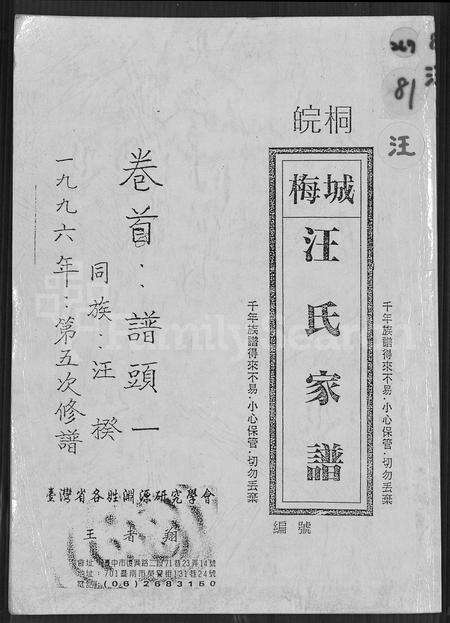 269
81
汪
皖桐
梅城
汪氏家譜
千年族譜得來不易·小心保管·切勿丟棄
千年族譜得來不易·小心保管·切勿丟棄
編號
卷首：譜頭一
同族：汪揆
一九九六年：第五次修譜
臺灣省各姓淵源研究學會
王者翔
地址：701臺南市榮譽街131巷24號
電話：(06)2683150